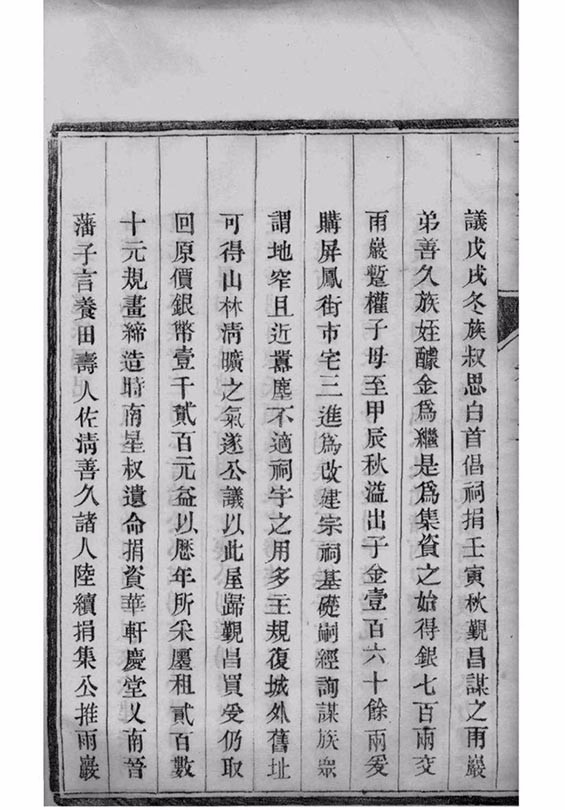 議戊戌冬族叔思白首倡祠捐壬寅秋覲昌謀之雨巖
弟善久族姪醵金爲繼是爲集資之始得銀七百兩交
雨巖蹔權子母至甲辰秋溢出子金壹百六十餘兩爰
購屏鳳街市宅三進爲改建宗祠基礎嗣經詢謀族衆
謂地窄且近囂塵不適祠宇之用多主規復城外舊址
可得山林淸曠之气遂公議以此屋歸覲昌買受仍取
回原價銀幣壹千貳百元益以歷年所釆廛租貳百數
十元規畫締造時南星叔遺命捐資華軒慶堂乂南晉
藩子言養田壽人佐淸善久諸人陸續捐集公推雨巖